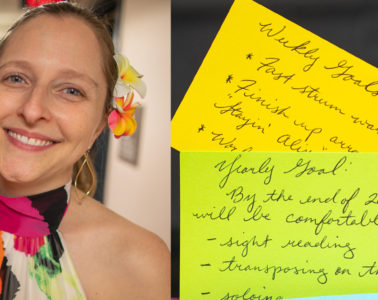 Weekly Goals
* Fast strum
* Finish up
"Stayin' Ali
*
Yearly Goal:
By the end of 2
will be comfortabl
- sight reading
- transposing on th
- soloing